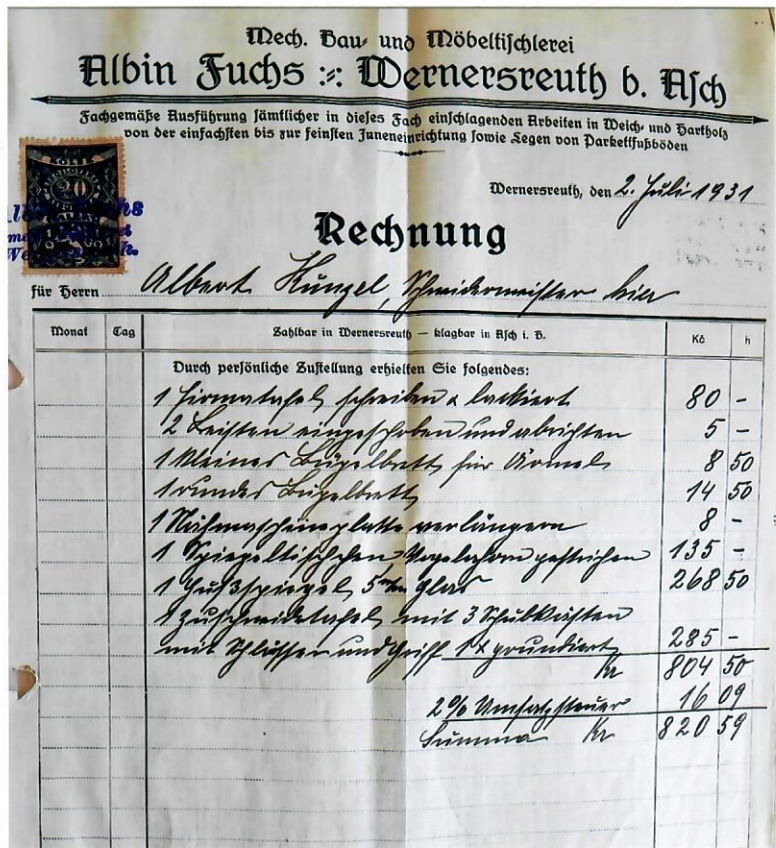 Mech. Bau- und Möbeltischlerei
Albin Fuchs :-: Wernersreuth b. Asch
Fachgemäße Ausführung sämtlicher in dieses Fach einschlagenden Arbeiten in Weich- und Hartholz
von der einfachsten bis zur feinsten Inneneinrichtung sowie Legen von Parkettfußböden
20
Wernersreuth, den 2. Juli 1931
Rechnung
für Herrn Albert Künzel, Schneidermeister hier
Monat Tag Zahlbar in Wernersreuth — klagbar in Asch i. B. Kč h
Durch persönliche Zustellung erhielten Sie folgendes:
1 Firmatafel schreiben & lackiert 80 -
2 Leisten eingeschoben und abrichten 5 -
1 kleines Bügelbrett für Ärmel 8 50
1 rundes Bügelbrett 14 50
1 Nähmaschinplatte verlängern 8 -
1 Spiegeltischchen Vogelahorn gestrichen 135 -
1 Fußspiegel 5 m/m Glas 268 50
1 Zuschneidetafel mit 3 Schubkästen
mit Schlösser und Griff 1 x grundiert 285 -
Kr 804 50
2% Umsatzsteuer 16 09
Summa Kr 820 59